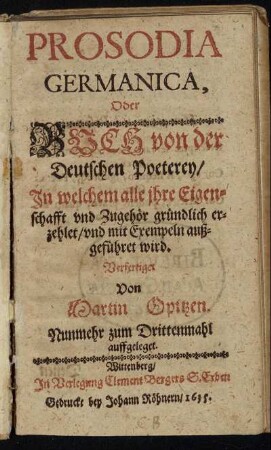 PROSODIA
GERMANICA,
Oder
BUCH von der
Deutschen Poeterey/
In welchem alle jhre Eigen-
schafft vnd Zugehör gründlich er-
zehlet/vnd mit Exempeln auß-
geführet wird.
Verfertiget
Von
Martin Opitzen.
Nunmehr zum Drittenmahl
auffgeleget.
Wittenberg/
In Verlegung Clement Bergers S. Erben
Gedruckt bey Johann Röhnern/